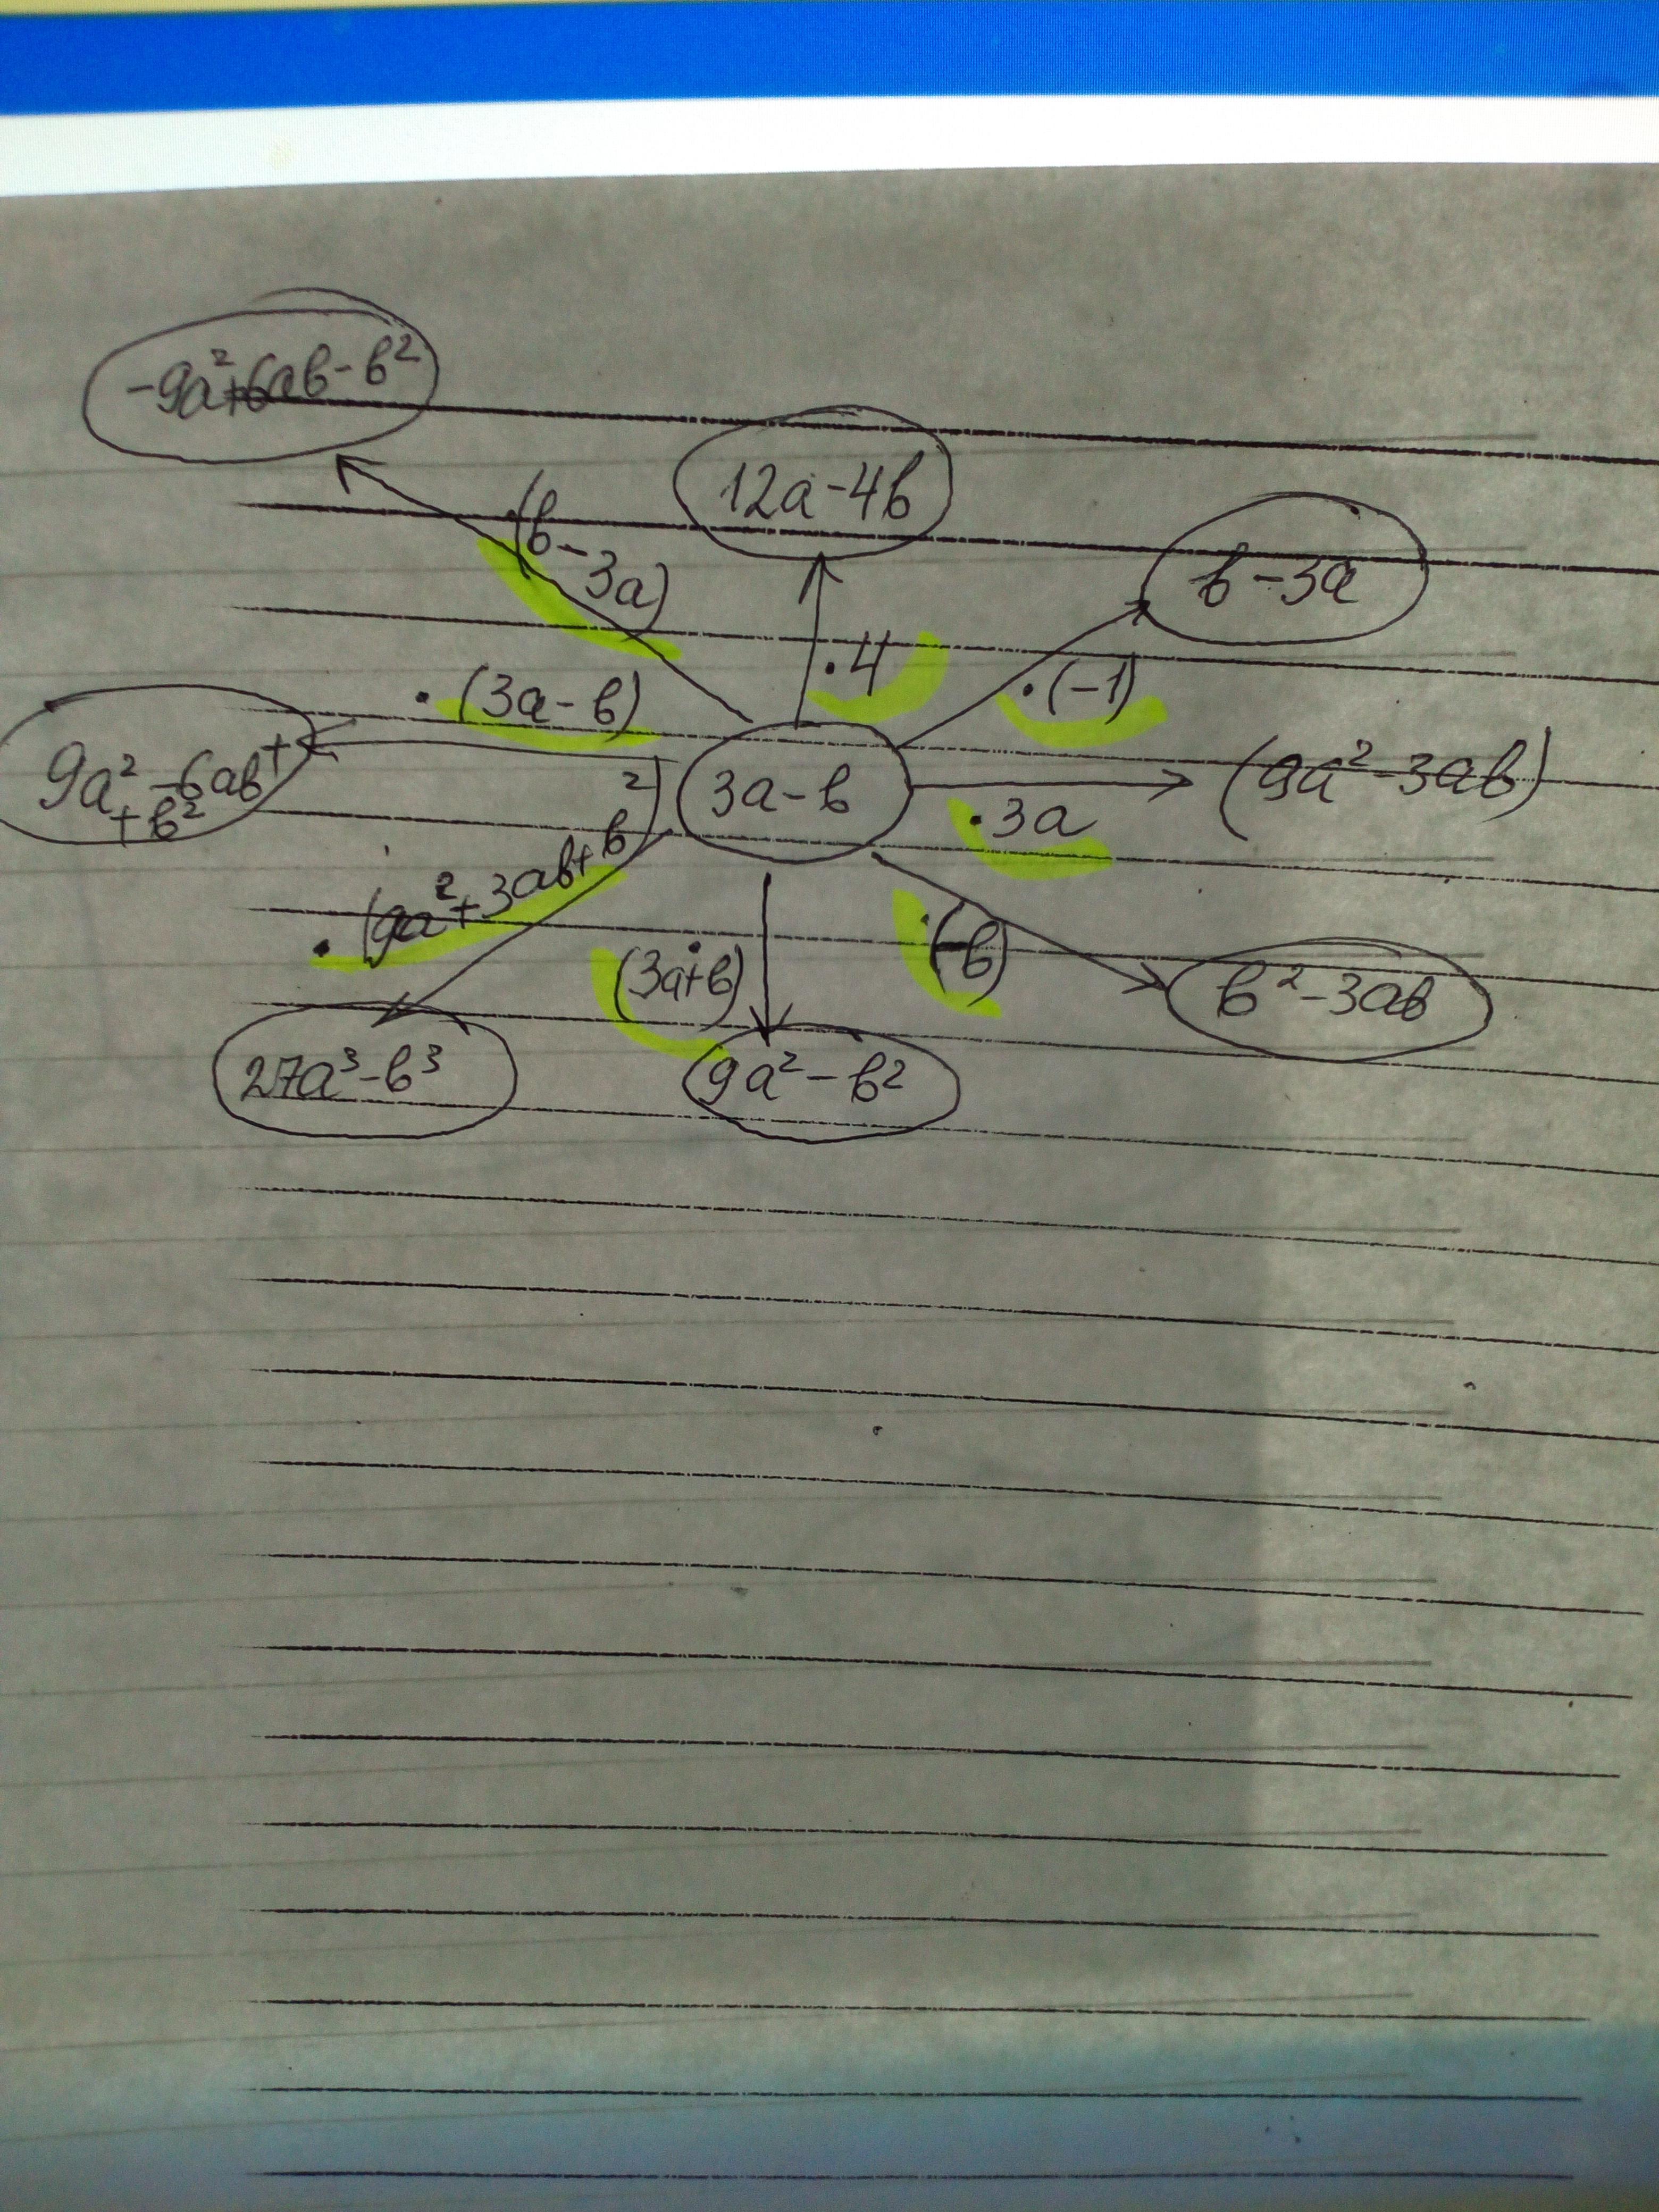 -9a²+6ab-b²
12a-4b
b-3a
(b-3a)
·4
·(-1)
·(3a-b)
9a²-6ab+
+b²
3a-b
(9a²-3ab)
·3a
·(9a²+3ab+b²)
(3a+b)
·(-b)
b²-3ab
27a³-b³
9a²-b²